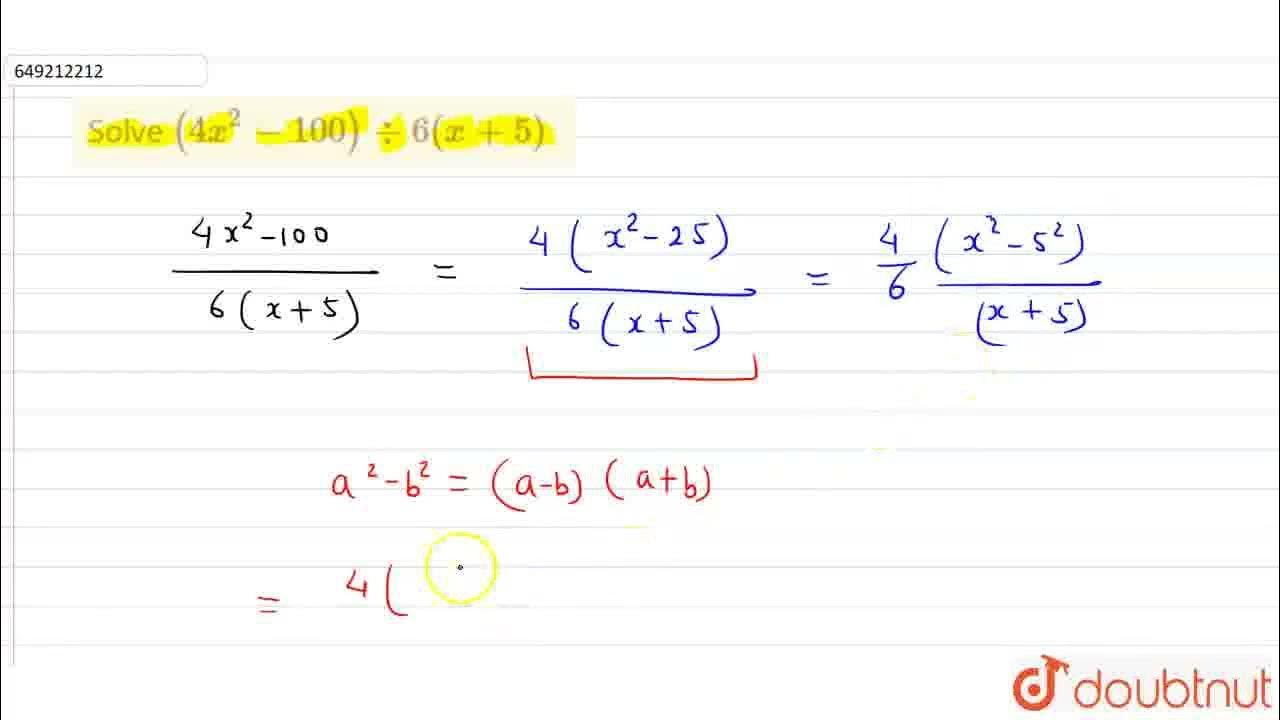 649212212
Solve (4x² − 100) ÷ 6(x + 5)
4x²-100 / 6(x+5) = 4(x²-25) / 6(x+5) = 4/6 (x²-5²) / (x+5)
a²-b² = (a-b) (a+b)
= 4(
doubtnut